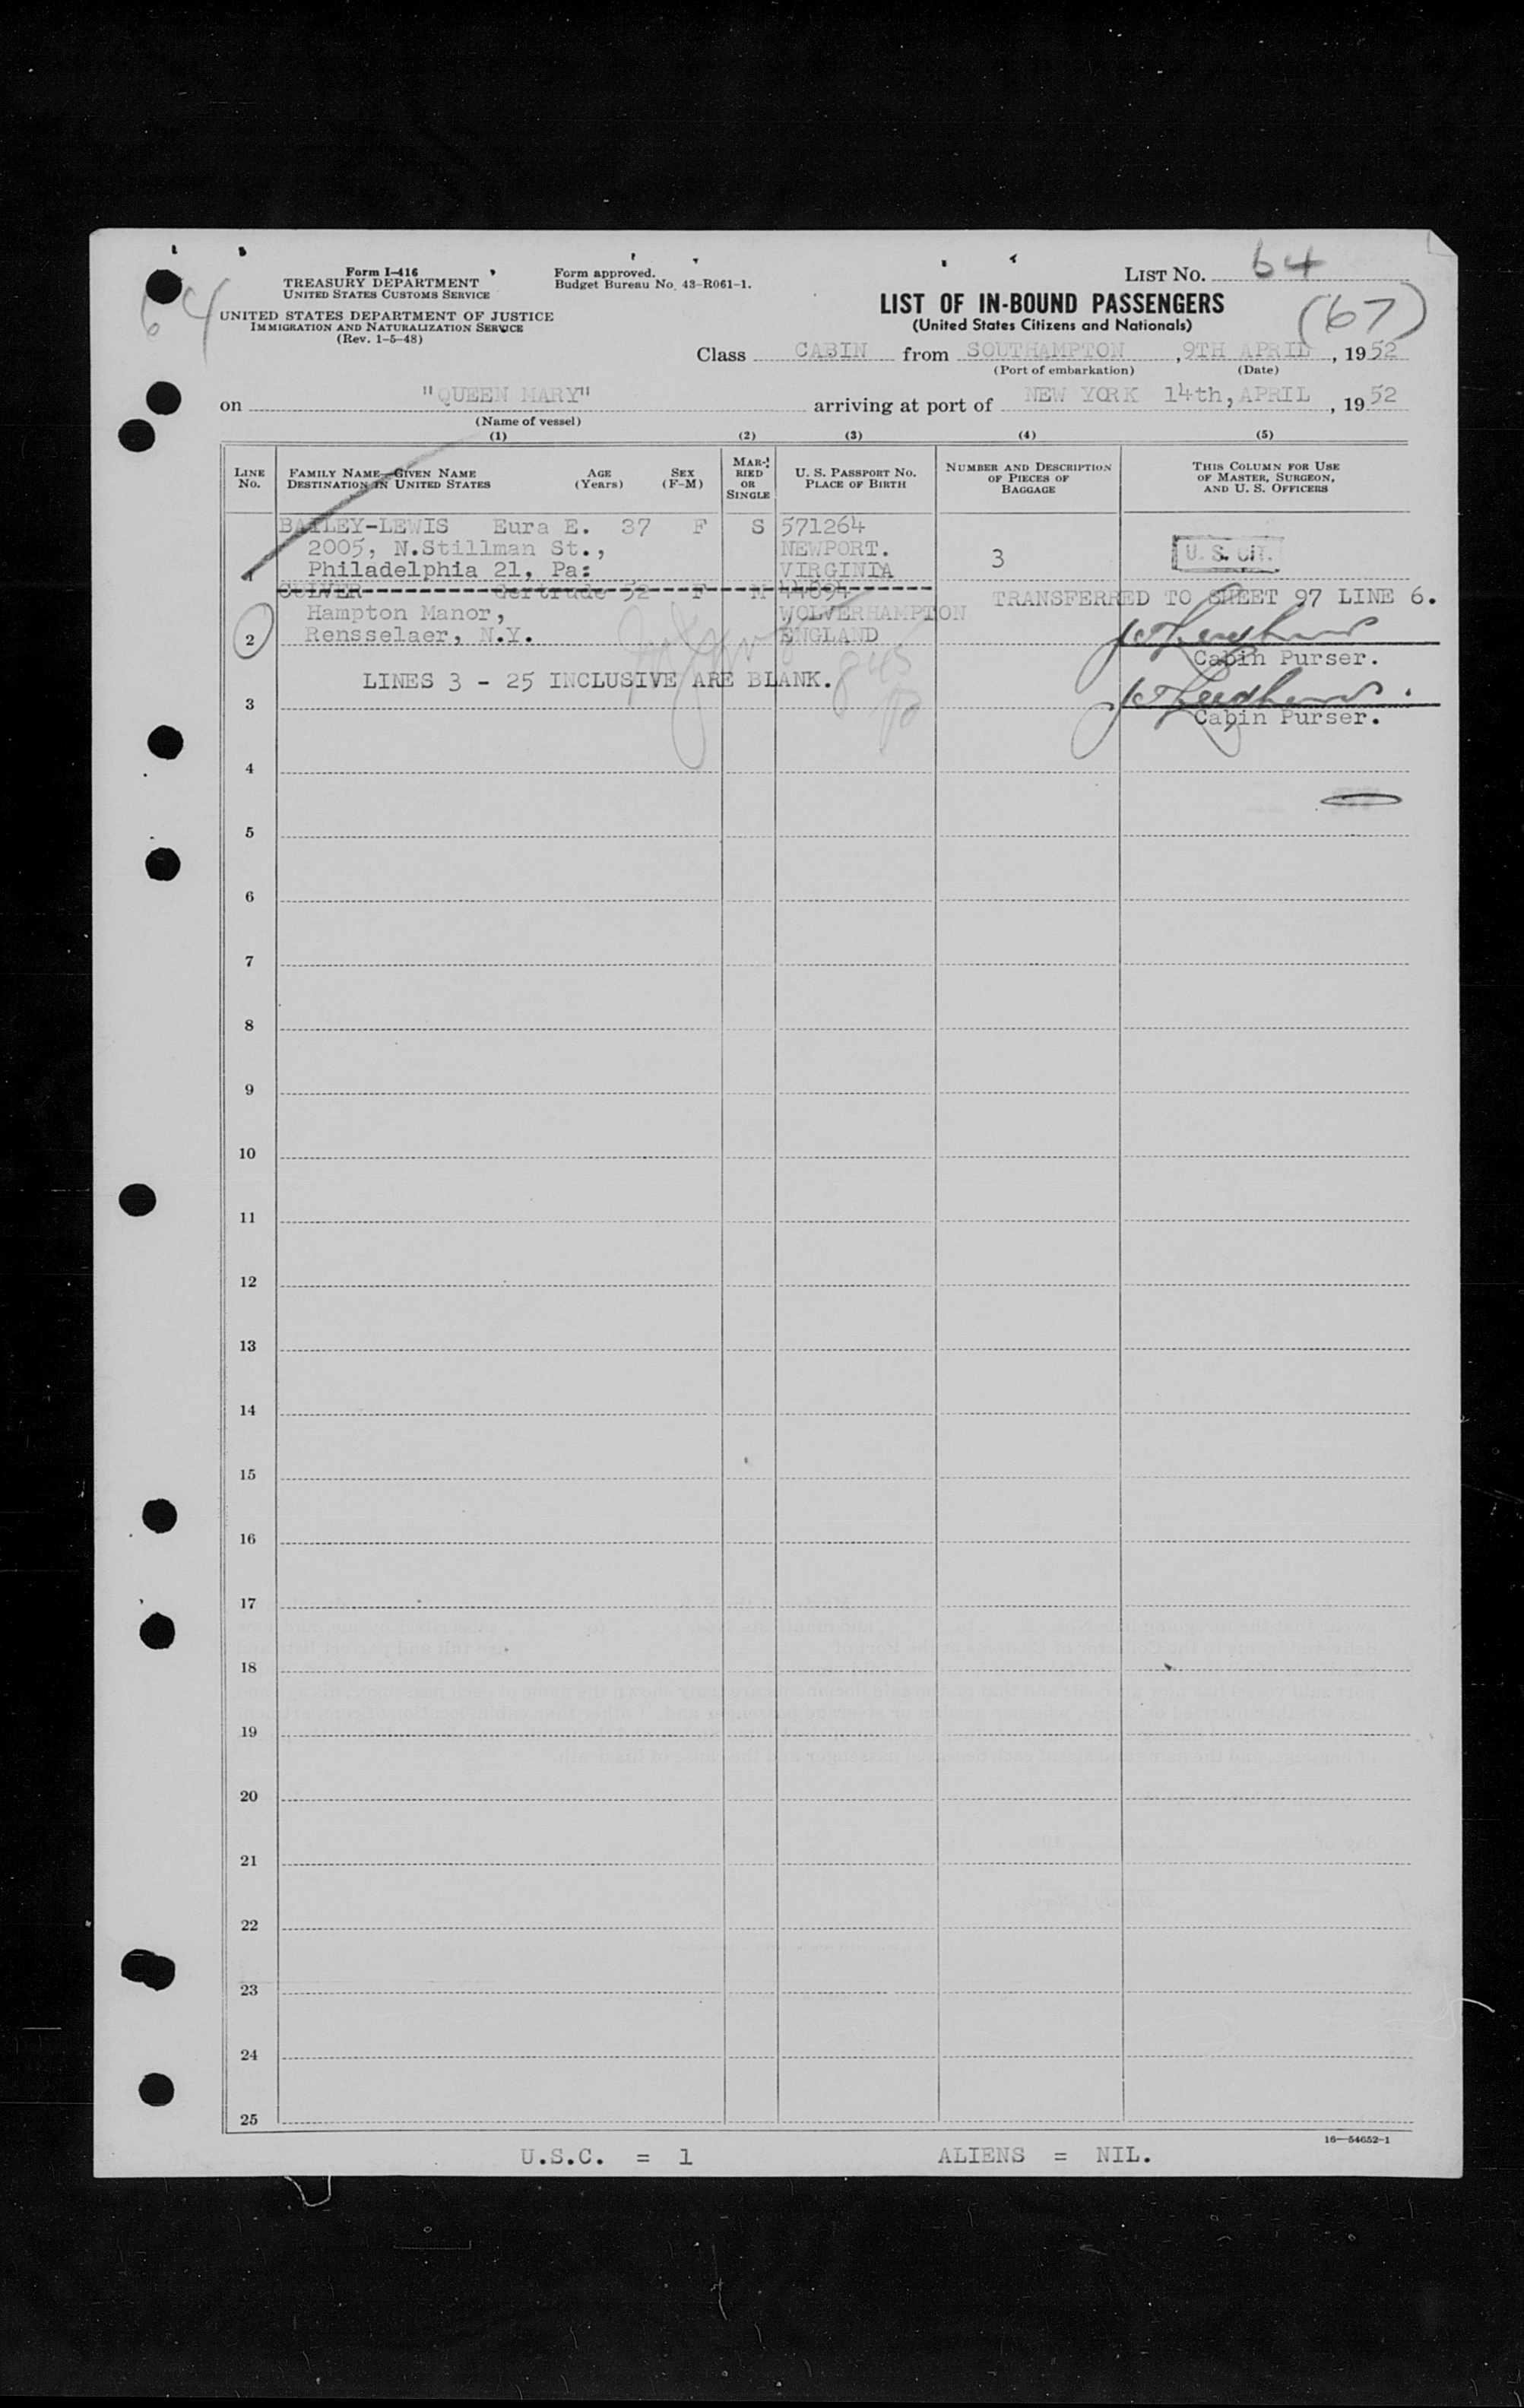 Form I-416
TREASURY DEPARTMENT
UNITED STATES CUSTOMS SERVICE
UNITED STATES DEPARTMENT OF JUSTICE
IMMIGRATION AND NATURALIZATION SERVICE
(Rev. 1-5-48)
Form approved.
Budget Bureau No. 43-R061-1.
64
LIST NO. 64
LIST OF IN-BOUND PASSENGERS
(United States Citizens and Nationals)
(67)
Class CABIN from SOUTHAMPTON , 9TH APRIL , 1952
(Port of embarkation) (Date)
on "QUEEN MARY" arriving at port of NEW YORK 14th, APRIL , 1952
(Name of vessel)
(1) (2) (3) (4) (5)
LINE NO.
FAMILY NAME—GIVEN NAME
DESTINATION IN UNITED STATES
AGE (Years)
SEX (F-M)
MARRIED OR SINGLE
U. S. PASSPORT NO.
PLACE OF BIRTH
NUMBER AND DESCRIPTION OF PIECES OF BAGGAGE
THIS COLUMN FOR USE OF MASTER, SURGEON, AND U. S. OFFICERS
BAILEY-LEWIS Eura E. 37 F S 571264
2005, N.Stillman St., NEWPORT. 3 U. S. CIT.
1 Philadelphia 21, Pa: VIRGINIA
CULVER Gertrude 52 F M 44894
TRANSFERRED TO SHEET 97 LINE 6.
Hampton Manor, WOLVERHAMPTON
2 Rensselaer, N.Y. ENGLAND
Cabin Purser.
LINES 3 - 25 INCLUSIVE ARE BLANK.
3
Cabin Purser.
4
5
6
7
8
9
10
11
12
13
14
15
16
17
18
19
20
21
22
23
24
25
16—54652-1
U.S.C. = 1 ALIENS = NIL.